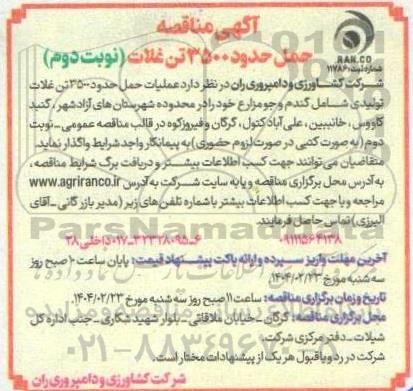 آگهی مناقصه
حمل حدود ۳۵۰۰ تن غلات (نوبت دوم)
RAN.CO
شماره ثبت: ۱۱۷۸۶
شرکت کشاورزی و دامپروری ران در نظر دارد عملیات حمل حدود ۳۵۰۰ تن غلات
تولیدی شامل گندم و جو مزارع خود را در محدوده شهرستان های آزادشهر، گنبد
کاووس، خانببین، علی آباد کتول، گرگان و فیروزکوه در قالب مناقصه عمومی - نوبت
دوم (به صورت کتبی در صورت لزوم حضوری) به پیمانکار واجد شرایط واگذار نماید.
متقاضیان می توانند جهت کسب اطلاعات بیشتر و دریافت برگ شرایط مناقصه،
به آدرس محل برگزاری مناقصه و یا به سایت شرکت به آدرس www.agriranco.ir
مراجعه و یا جهت کسب اطلاعات بیشتر با شماره تلفن های زیر (مدیر بازرگانی - آقای
البرزی) تماس حاصل فرمایند.
۰۹۱۱۱۵۶۴۱۳۸ ۶-۰۱۷۳۲۳۲۸۰۹۵ داخلی ۲۸
آخرین مهلت واریز سپرده و ارائه پاکت پیشنهاد قیمت: پایان ساعت ۱۰ صبح روز
سه شنبه مورخ ۱۴۰۴/۰۲/۲۳.
تاریخ و زمان برگزاری مناقصه: ساعت ۱۱ صبح روز سه شنبه مورخ ۱۴۰۴/۰۲/۲۳.
محل برگزاری مناقصه: گرگان - خیابان ملاقاتی - بلوار شهید شکاری - جنب اداره کل
شیلات - دفتر مرکزی شرکت.
شرکت در رد و یا قبول هر یک از پیشنهادات مختار است.
شرکت کشاورزی و دامپروری ران
ParsNamadData
۰۲۱-۸۸۳۴۹۶۷۰